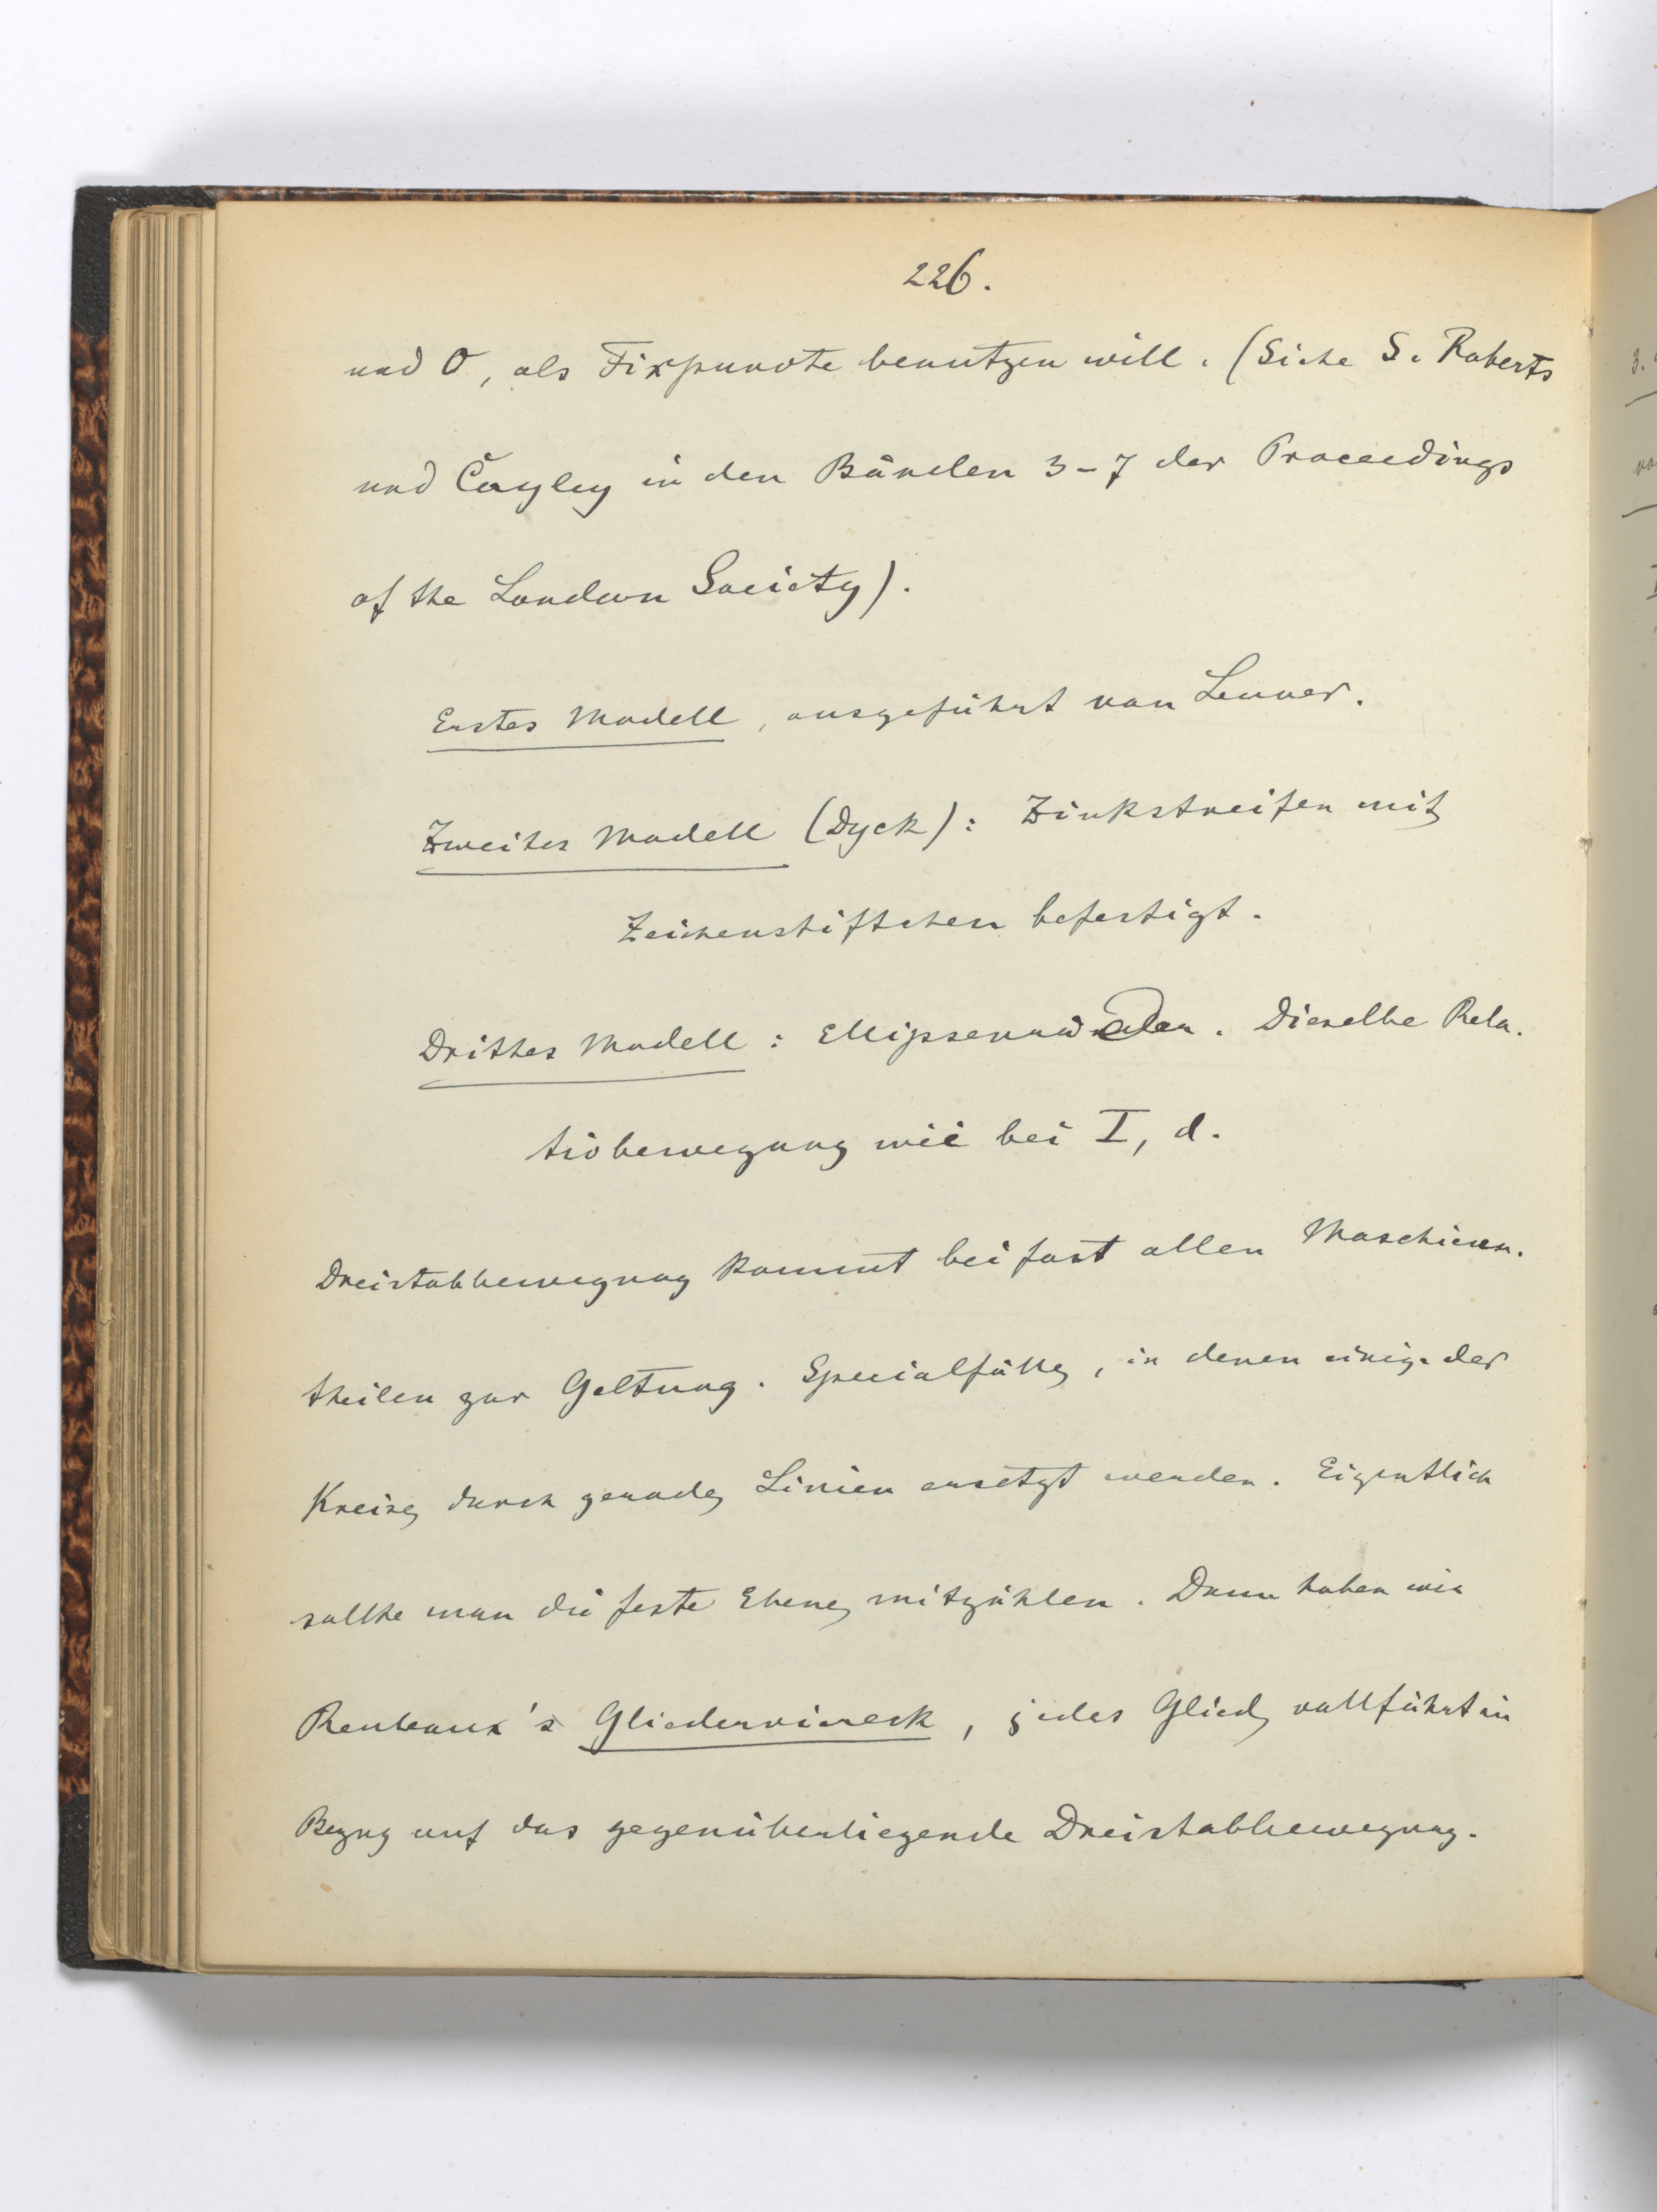 226.
und O, als Fixpuncte benutzen will. (Siehe S. Roberts
und Cayley in den Bänden 3-7 der Proceedings
of the London Society).
Erstes Modell, ausgeführt von Leuner.
Zweites Modell (Dyck): Zinkstreifen mit
Zeichenstiftchen befestigt.
Drittes Modell: Ellipsenräder. Dieselbe Rela-
tivbewegung wie bei I, d.
Dreistabbewegung kommt bei fast allen Maschinen-
theilen zur Geltung. Specialfälle, in denen einige der
Kreise durch gerade Linien ersetzt werden. Eigentlich
sollte man die feste Ebene mitzählen. Dann haben wir
Reuleaux's Gliederviereck, jedes Glied vollführt in
Bezug auf das gegenüberliegende Dreistabbewegung.